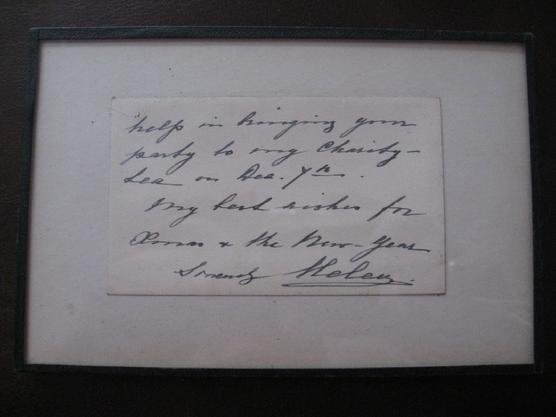 help in bringing your
party to my Charity-
tea on Dec. 7th.
My best wishes for
Xmas & the New-Year
Sincerely Helen.